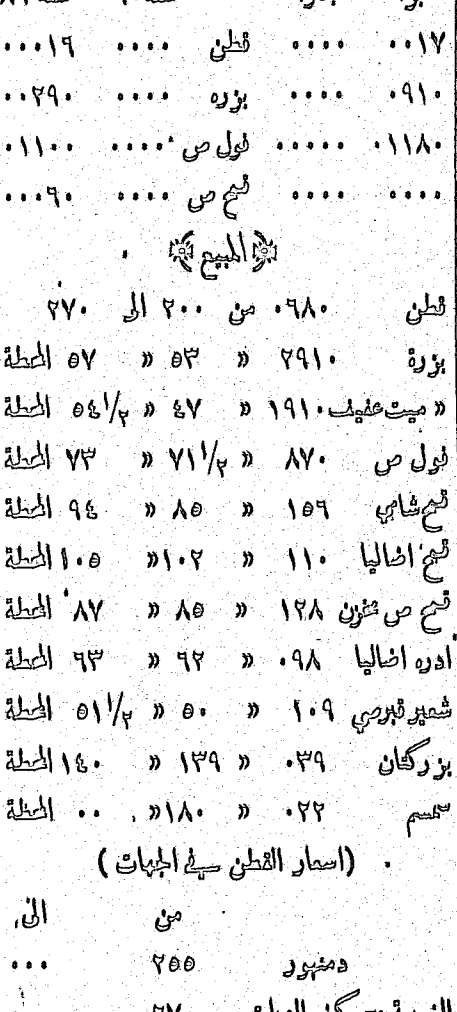 ٠٠١٧ ٠٠٠٠ قطن ٠٠٠٠ ٠٠٠١٦
٠٩١٠ ٠٠٠٠ بزره ٠٠٠٠ ٠٠٢٩٠
٠١١٨٠ ٠٠٠٠٠ فول ص ٠٠٠٠ ٠١١٠٠
٠٠٠٠ ٠٠٠٠ قمح ص ٠٠٠٠ ٠٠٠٦٠
﴿المبيع﴾
قطن ٠٦٨٠ من ٢٠٠ الى ٢٧٠
بزرة ٢٩١٠ « ٥٣ « ٥٧ المحطة
« ميت عفيف ١٩١٠ « ٤٧ « ٥٤١/٢ المحطة
فول ص ٨٧٠ « ٧١١/٢ « ٧٣ المحطة
قمح شامي ١٥٦ « ٨٥ « ٩٤ المحطة
قمح اضاليا ١١٠ « ١٠٢ « ١٠٥ المحطة
قمح ص مخزن ١٢٨ « ٨٥ « ٨٧ المحطة
ادره اضاليا ٠٩٨ « ٦٢ « ٦٣ المحطة
شعير قبرصي ١٠٩ « ٥٠ « ٥١١/٢ المحطة
بزر كتان ٠٣٩ « ١٣٩ « ١٤٠ المحطة
سمسم ٠٢٢ « ١٨٠ « ٠٠ المحطة
(اسعار القطن في الجهات)
من الى
دمنهور ٢٥٥ ٠٠٠